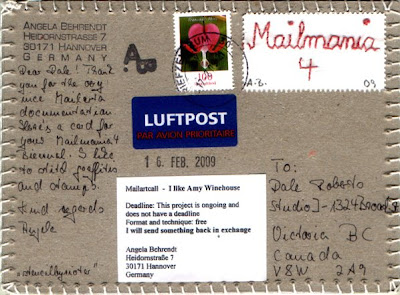 ANGELA BEHRENDT
HEIDORNSTRASSE 7
30171 HANNOVER
GERMANY
Dear Dale! Thank
you for the very
nice Mailart
documentation
a card for
your Mailmania 4
Biennel. I like
to graffities
and stamps.
Kind regards
Angela
BRIEFZENTRUM
100
Mailmania
4
A.B.
09
LUFTPOST
PAR AVION PRIORITAIRE
16. FEB. 2009
Mailartcall - I like Amy Winehouse
Deadline: This project is ongoing and
does not have a deadline
Format and technique: free
I will send something back in exchange
Angela Behrendt
Heidornstraße 7
30171 Hannover
Germany
TO:
Dale Roberts
Studio J - 1324 Broad St
Victoria BC
Canada
V8W 2A9